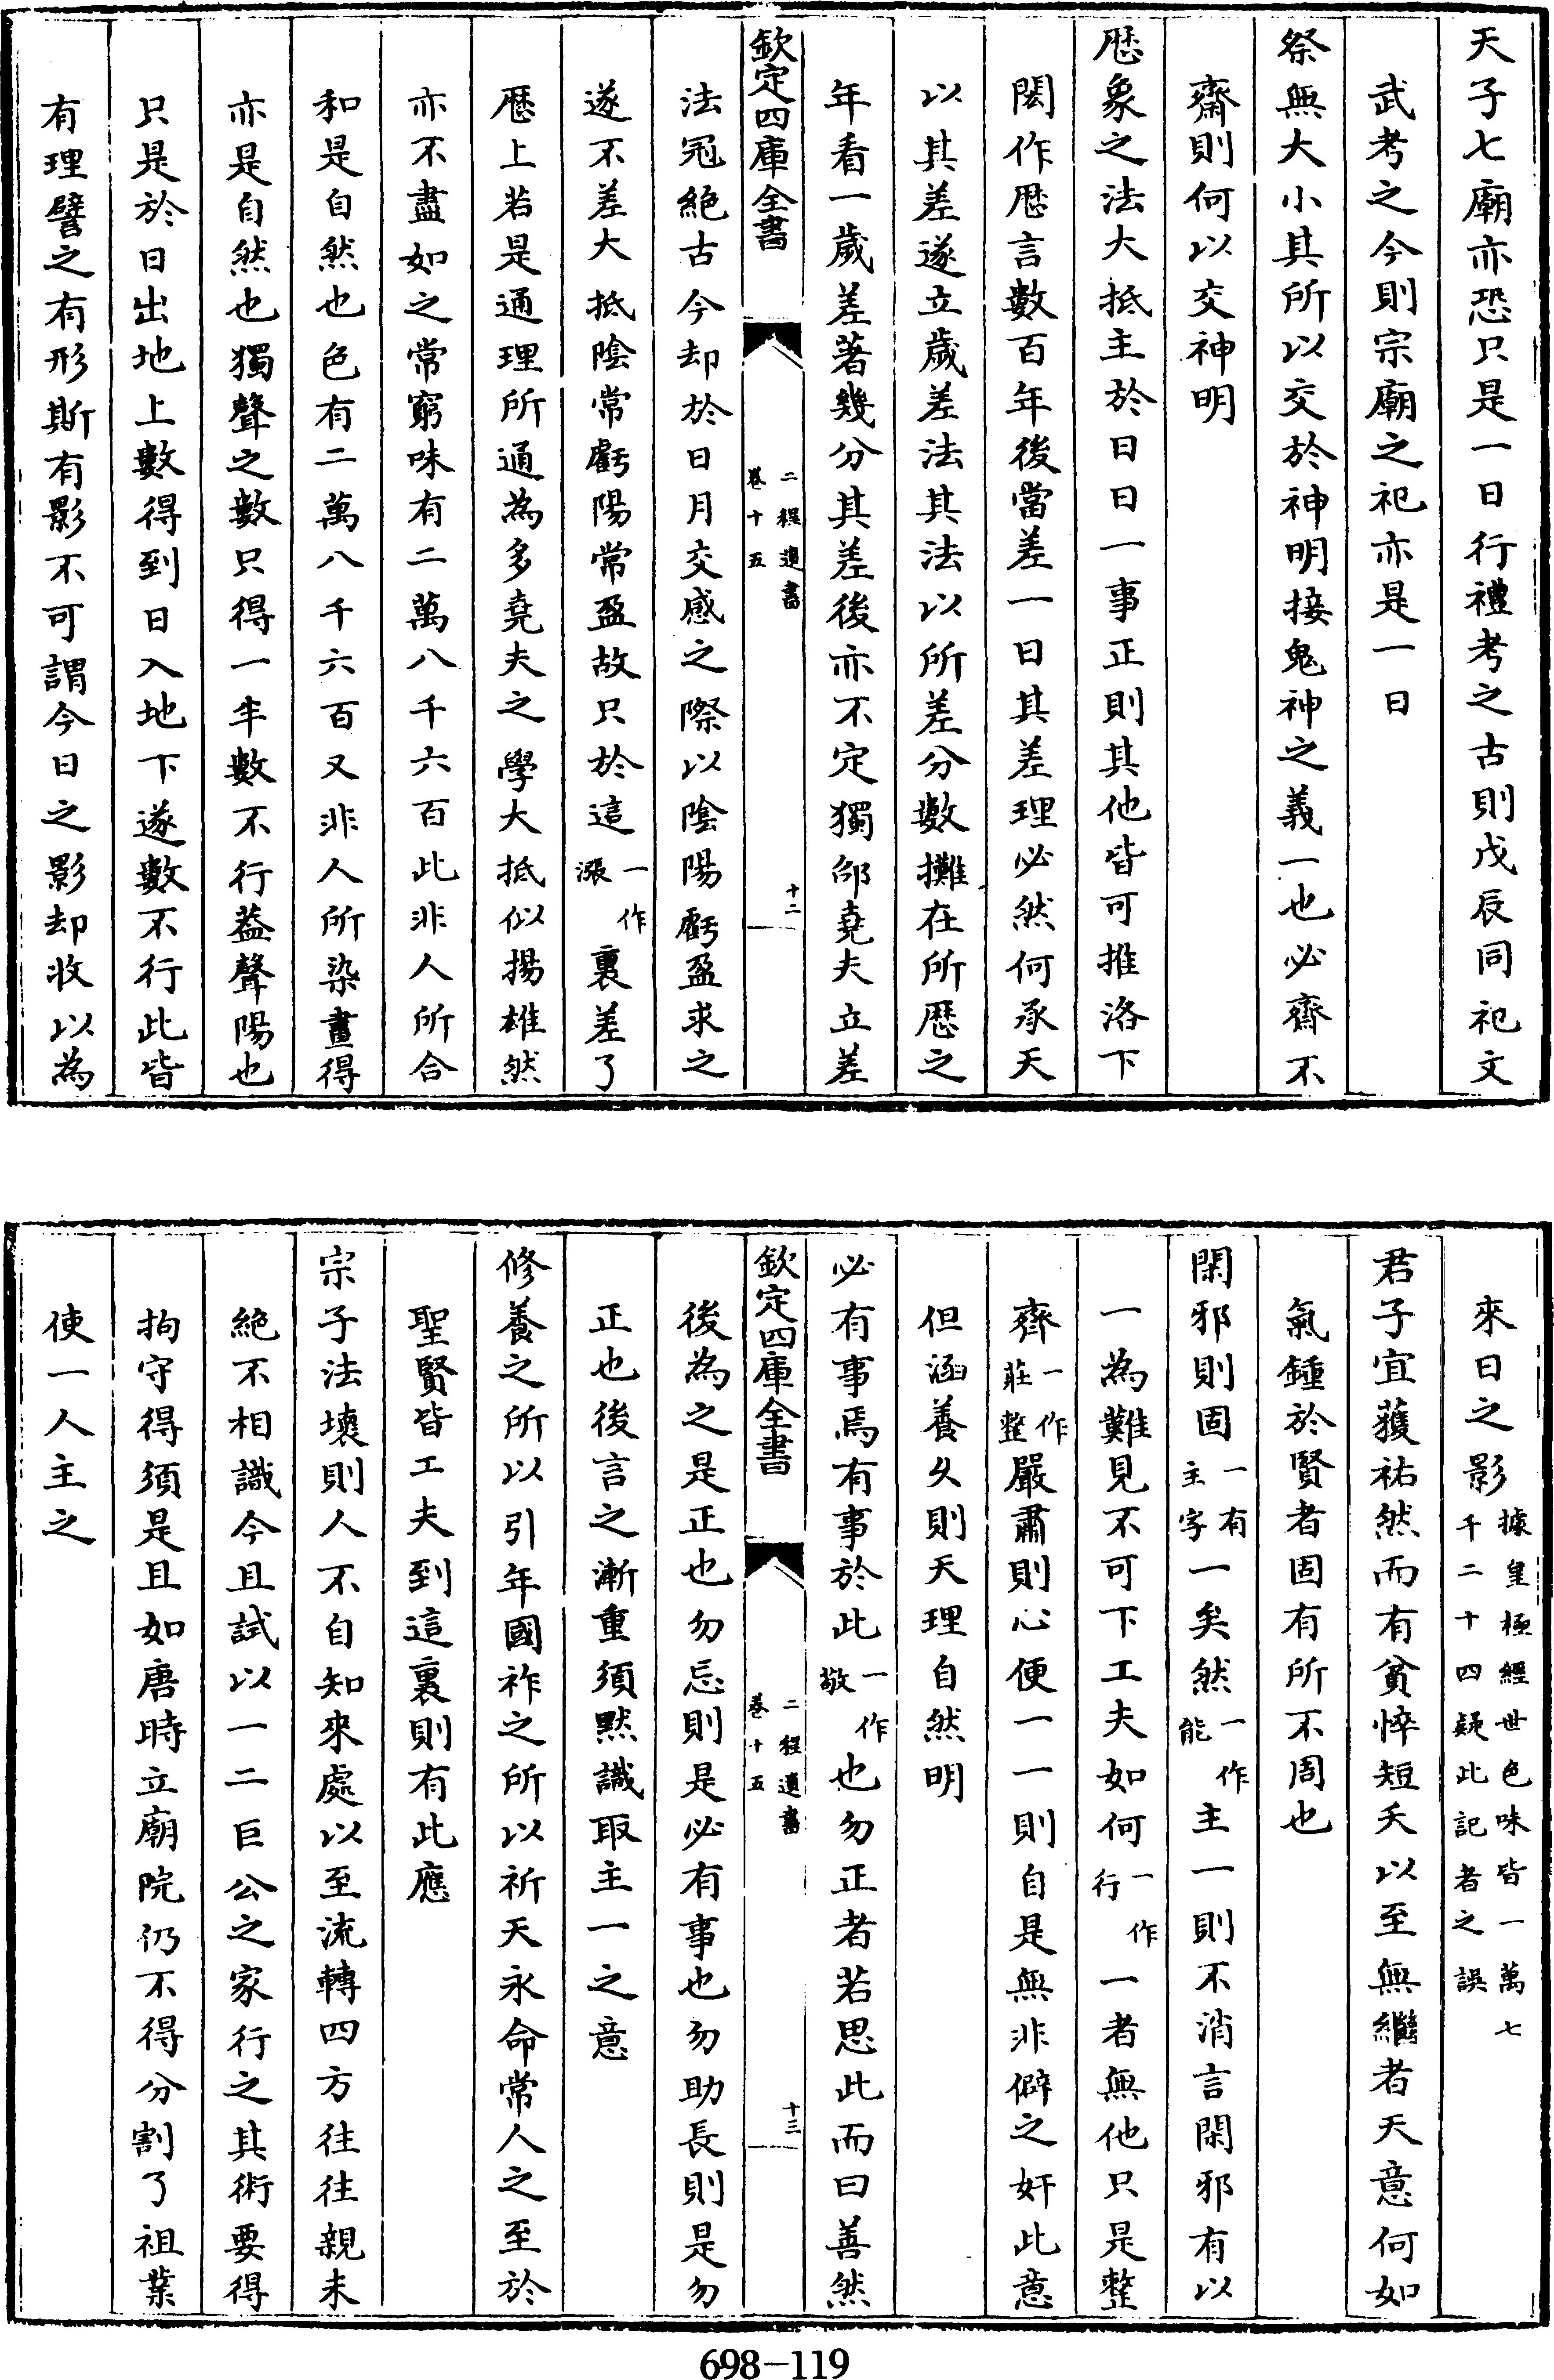 天子七廟亦恐只是一日行禮考之古則戊辰同祀文
武考之今則宗廟之祀亦是一日
祭無大小其所以交於神明接鬼神之義一也必齊不
齋則何以交神明
厯象之法大抵主於日日一事正則其他皆可推洛下
閎作厯言數百年後當差一日其差理必然何承天
以其差遂立歲差法其法以所差分數攤在所厯之
年看一歲差著幾分其差後亦不定獨邵堯夫立差
欽定四庫全書
二程遺書
卷十五
十二
法冠絶古今却於日月交感之際以陰陽虧盈求之
遂不差大抵陰常虧陽常盈故只於這一作漲裏差了
厯上若是通理所通為多堯夫之學大抵似揚雄然
亦不盡如之常窮味有二萬八千六百此非人所合
和是自然也色有二萬八千六百又非人所染畫得
亦是自然也獨聲之數只得一半數不行葢聲陽也
只是於日出地上數得到日入地下遂數不行此皆
有理譬之有形斯有影不可謂今日之影却收以為
來日之影據皇極經世色味皆一萬七千二十四疑此記者之誤
君子宜獲祐然而有貧悴短夭以至無繼者天意何如
氣鍾於賢者固有所不周也
閑邪則固一有主字一矣然一作能主一則不消言閑邪有以
一為難見不可下工夫如何一作行一者無他只是整
齊一作莊整嚴肅則心便一一則自是無非僻之奸此意
但涵養久則天理自然明
必有事焉有事於此一作敬也勿正者若思此而曰善然
欽定四庫全書
二程遺書
卷十五
十三
後為之是正也勿忘則是必有事也勿助長則是勿
正也後言之漸重須默識取主一之意
修養之所以引年國祚之所以祈天永命常人之至於
聖賢皆工夫到這裏則有此應
宗子法壞則人不自知來處以至流轉四方往往親未
絶不相識今且試以一二巨公之家行之其術要得
拘守得須是且如唐時立廟院仍不得分割了祖業
使一人主之
698-119